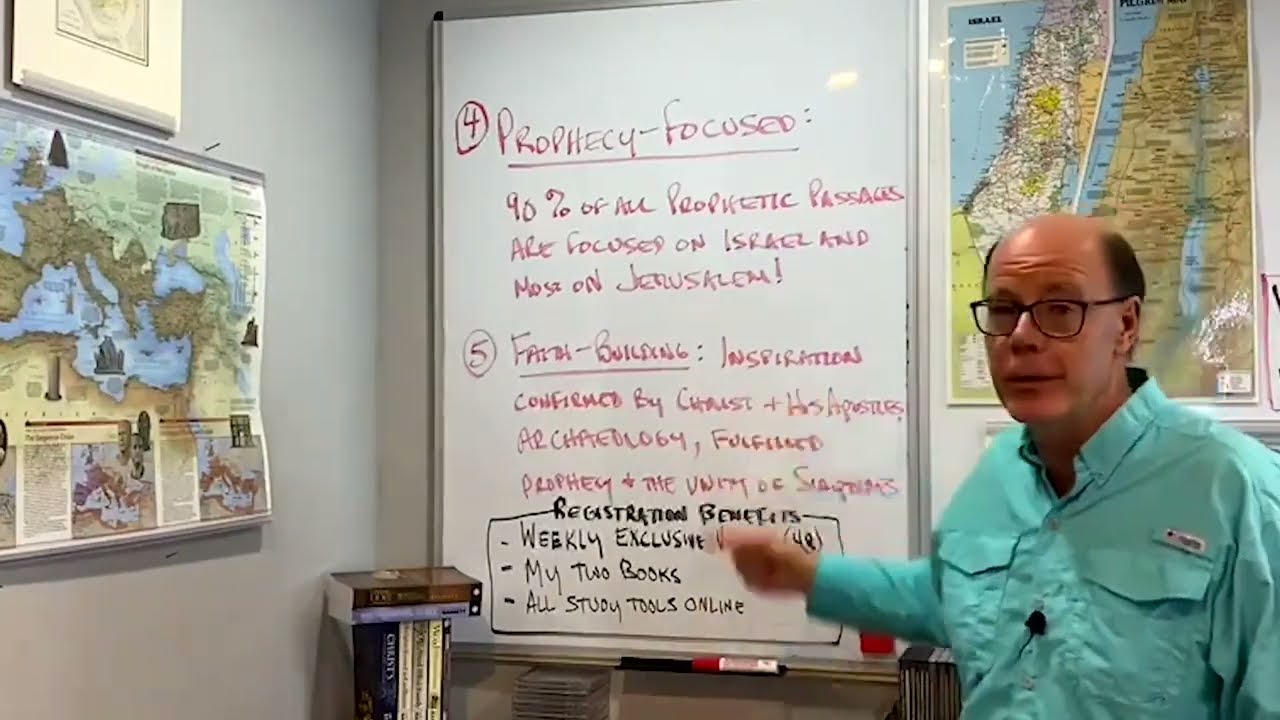 ④ PROPHECY-FOCUSED:
90% OF ALL PROPHETIC PASSAGES
ARE FOCUSED ON ISRAEL AND
MOST ON JERUSALEM!
⑤ FAITH-BUILDING: INSPIRATION
CONFIRMED BY CHRIST + HIS APOSTLES,
ARCHAEOLOGY, FULFILLED
PROPHECY + THE UNITY OF
REGISTRATION BENEFITS
- WEEKLY EXCLUSIVE (48)
- MY TWO BOOKS
- ALL STUDY TOOLS ONLINE
ISRAEL
PILGRIM MAP
CHRIST'S